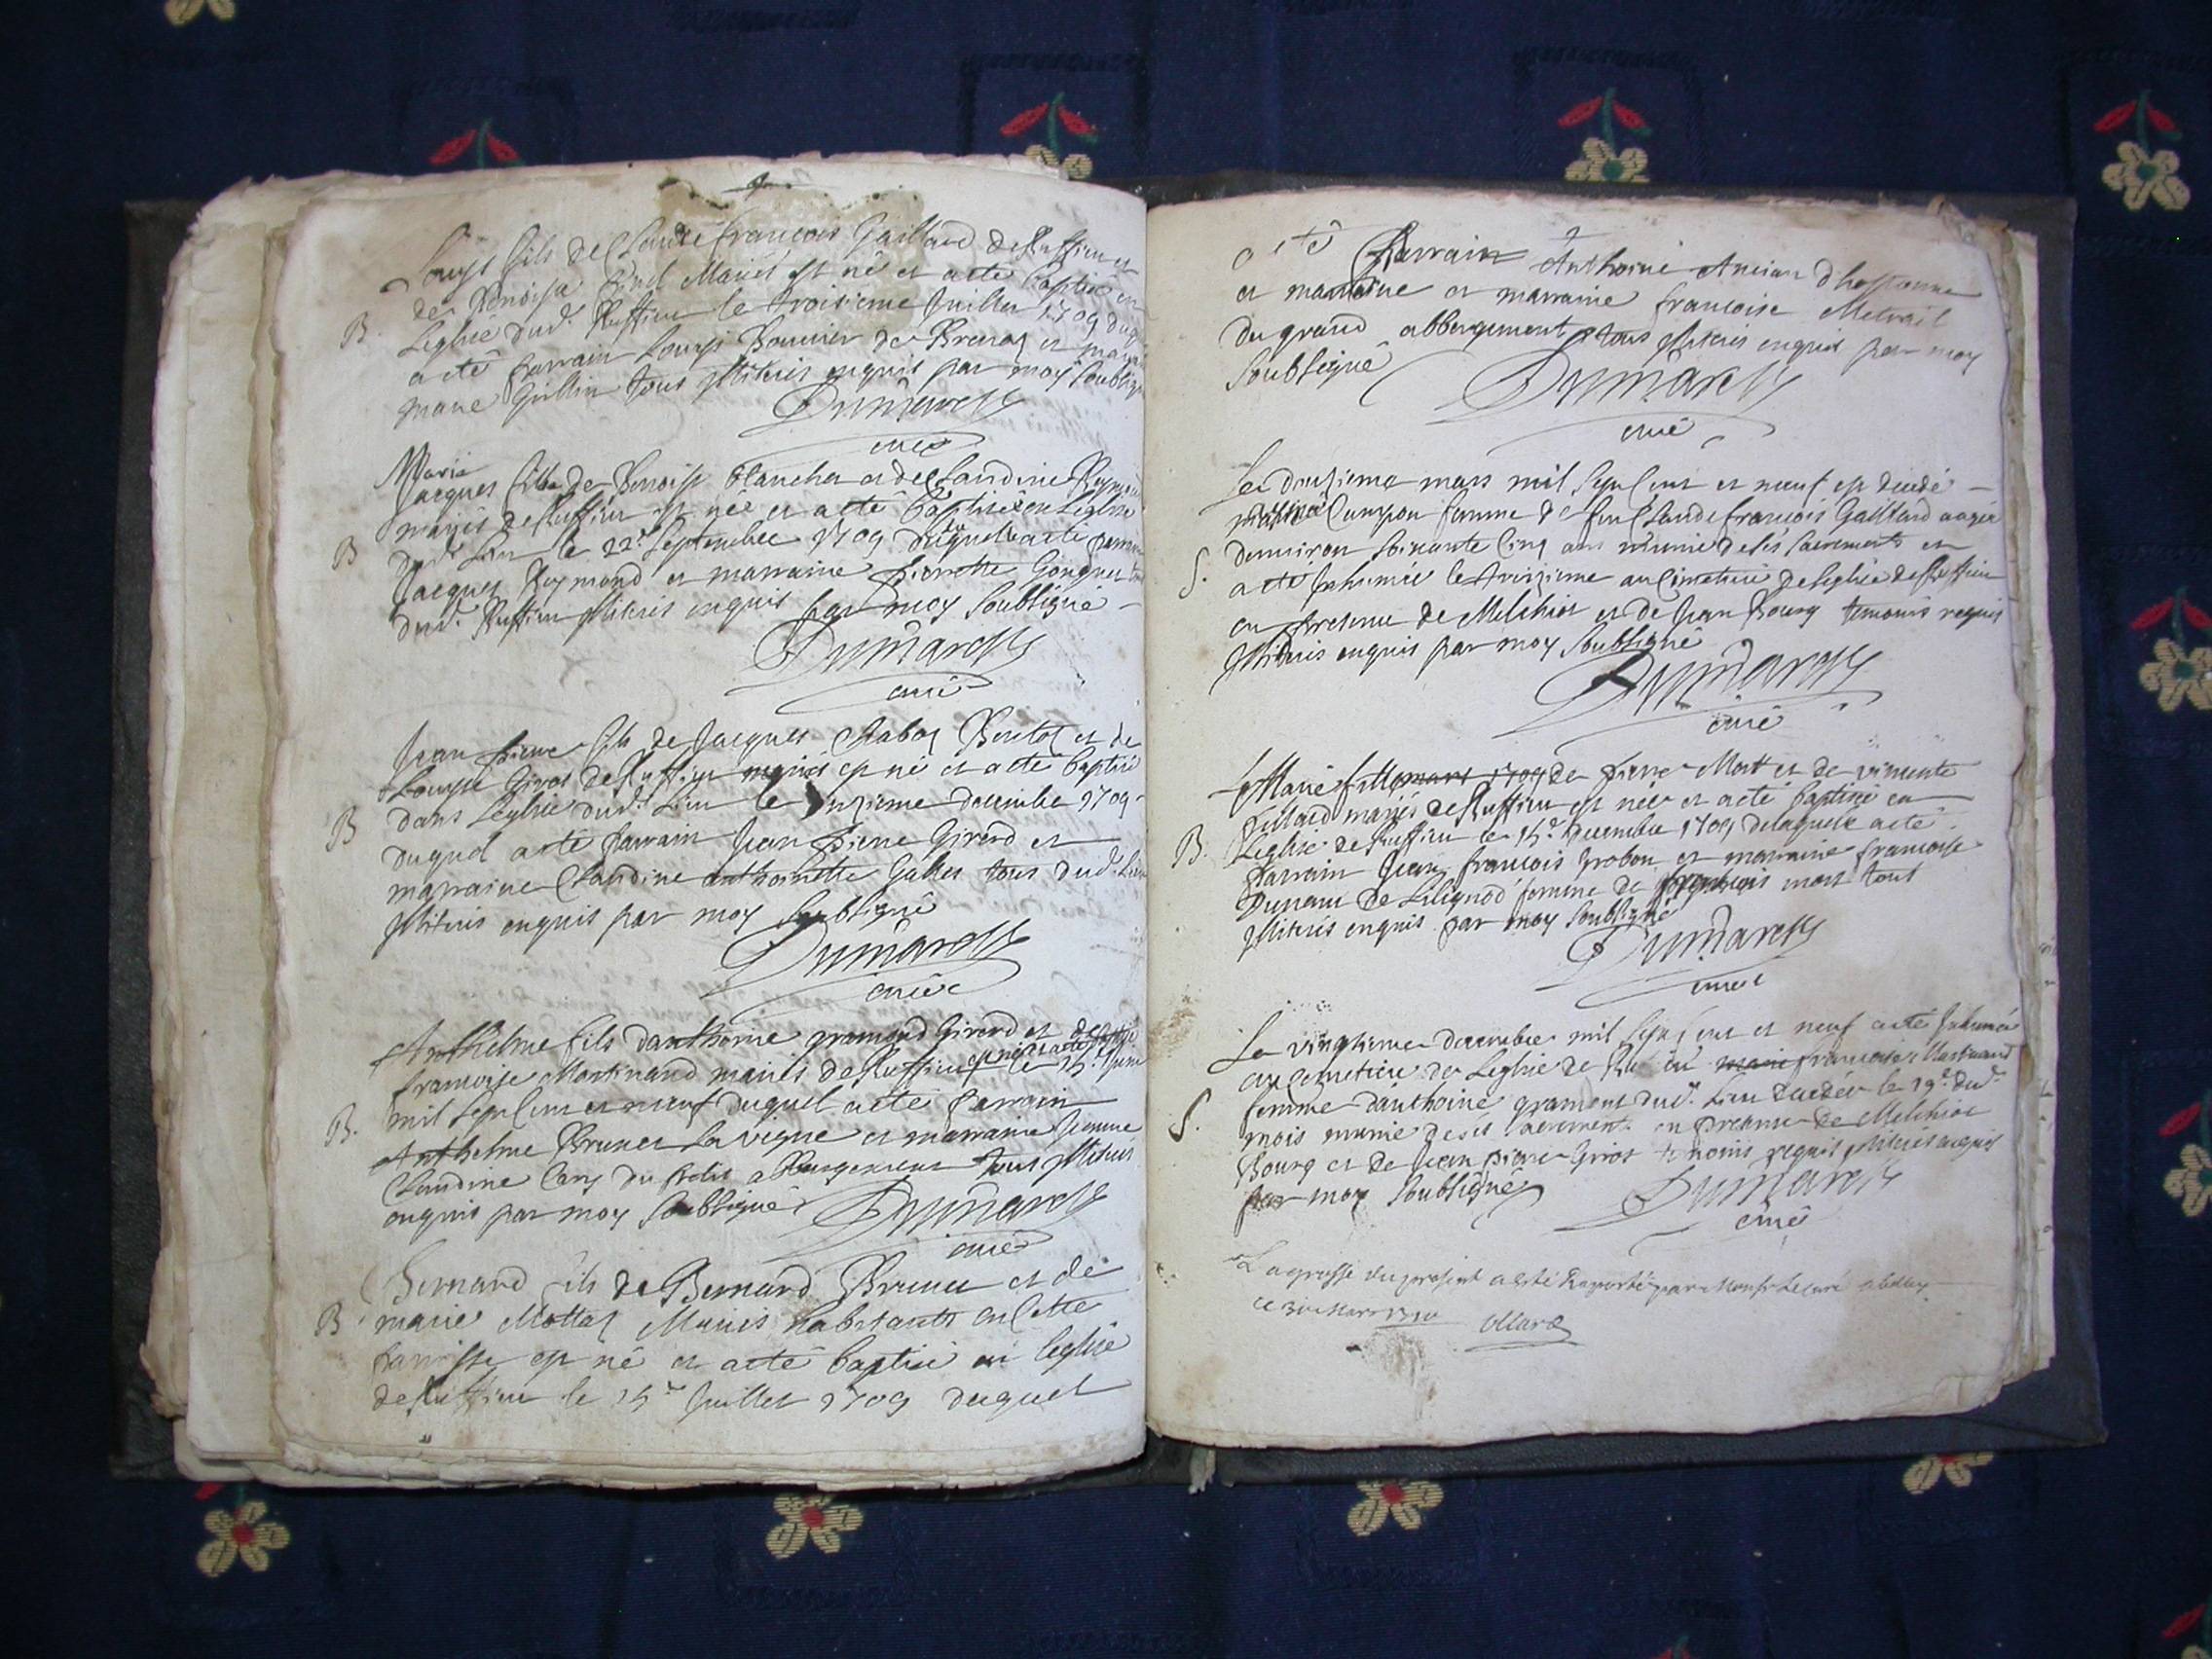 Louys fils de Claude francois Gaillard de Ruffieu et
de Benoiste Pinel Mariés est né et a eté baptisé en
B. Leglise dud. Ruffieu le troisieme Juillet 1709 duq
a eté parrain Louys de et
marie Guillin tous illiterés enquis par moy soubsigné
Dumarest
curé
Marie
Jacques fille de Benoist blanchet et de Claudine Reymond
mariés de Ruffieu est née et a eté baptisée en Leglise
B dud. Lieu le 22e Septembre 1709 de laquelle a eté parrain
Jacques Reymond et marraine pierrette
dud. Ruffieu illiterés enquis par moy soubsigné
Dumarest
curé
Jean pierre fils de Jacques et de
Louyse Girod de Ruffieu mariés est né et a eté baptisé
B dans Leglise dud. Lieu le onzieme decembre 1709
duquel a eté parrain Jean pierre Girerd et
marraine Claudine anthoinette Gallet tous dud. Lieu
illiterés enquis par moy soubsigné
Dumarest
curé
Anthelme fils danthoine gramond Girerd et de
francoise Martinand mariés de Ruffieu est né et a eté baptisé le 15e
B. mil sept cent et neuf duquel a eté parrain
Anthelme Brunet Lavigne et marraine Jeanne
Claudine du petit abbergement tous illiterés
enquis par moy soubsigné Dumarest
curé
Bernard fils de Bernard Brunet et de
B marie Mottaz Mariés habitants en cette
parroisse est né et a eté baptisé en leglise
de Ruffieu le 15e Juillet 1709 duquel
a eté Parrain Anthoine Ancian dhostonne
et marraine et marraine francoise Metrail
du grand abbergement tous illiterés enquis par moy
soubsigné Dumarest
curé
Le douzieme mars mil sept cent et neuf est decedé
femme de feu Claude francois Gaillard aagée
S. denviron soixante cinq ans munie de ses sacrements et
a eté inhumée le treizieme au cimetiere de leglise de Ruffieu
en presence de Melchior et de Jean Bourg temoins requis
illiterés enquis par moy soubsigné
Dumarest
curé
Marie fille mars 1709 de pierre Mort et de vincente
mariés de Ruffieu est née et a eté baptisée en
B. Leglise de Ruffieu le 15e Decembre 1709 delaquelle a eté
parrain Jean francois grobon et marraine francoise
de Lilignod femme de francois mort tous
illiterés enquis par moy soubsigné
Dumarest
curé
Le vingtieme decembre mil sept cent et neuf a eté Inhumée
au cimetiere de Leglise de Ruffieu marie francoise Martinand
femme danthoine gramont dud. Lieu decedée le 19e dud.
S. mois munie de ses sacrements en presence de Melchior
Bourg et de Jean pierre Girod temoins requis illiterés enquis
par moy soubsigné Dumarest
curé
La grosse du present a esté Raportée par Monsr Le curé a belley
ce 31e Mars 1710